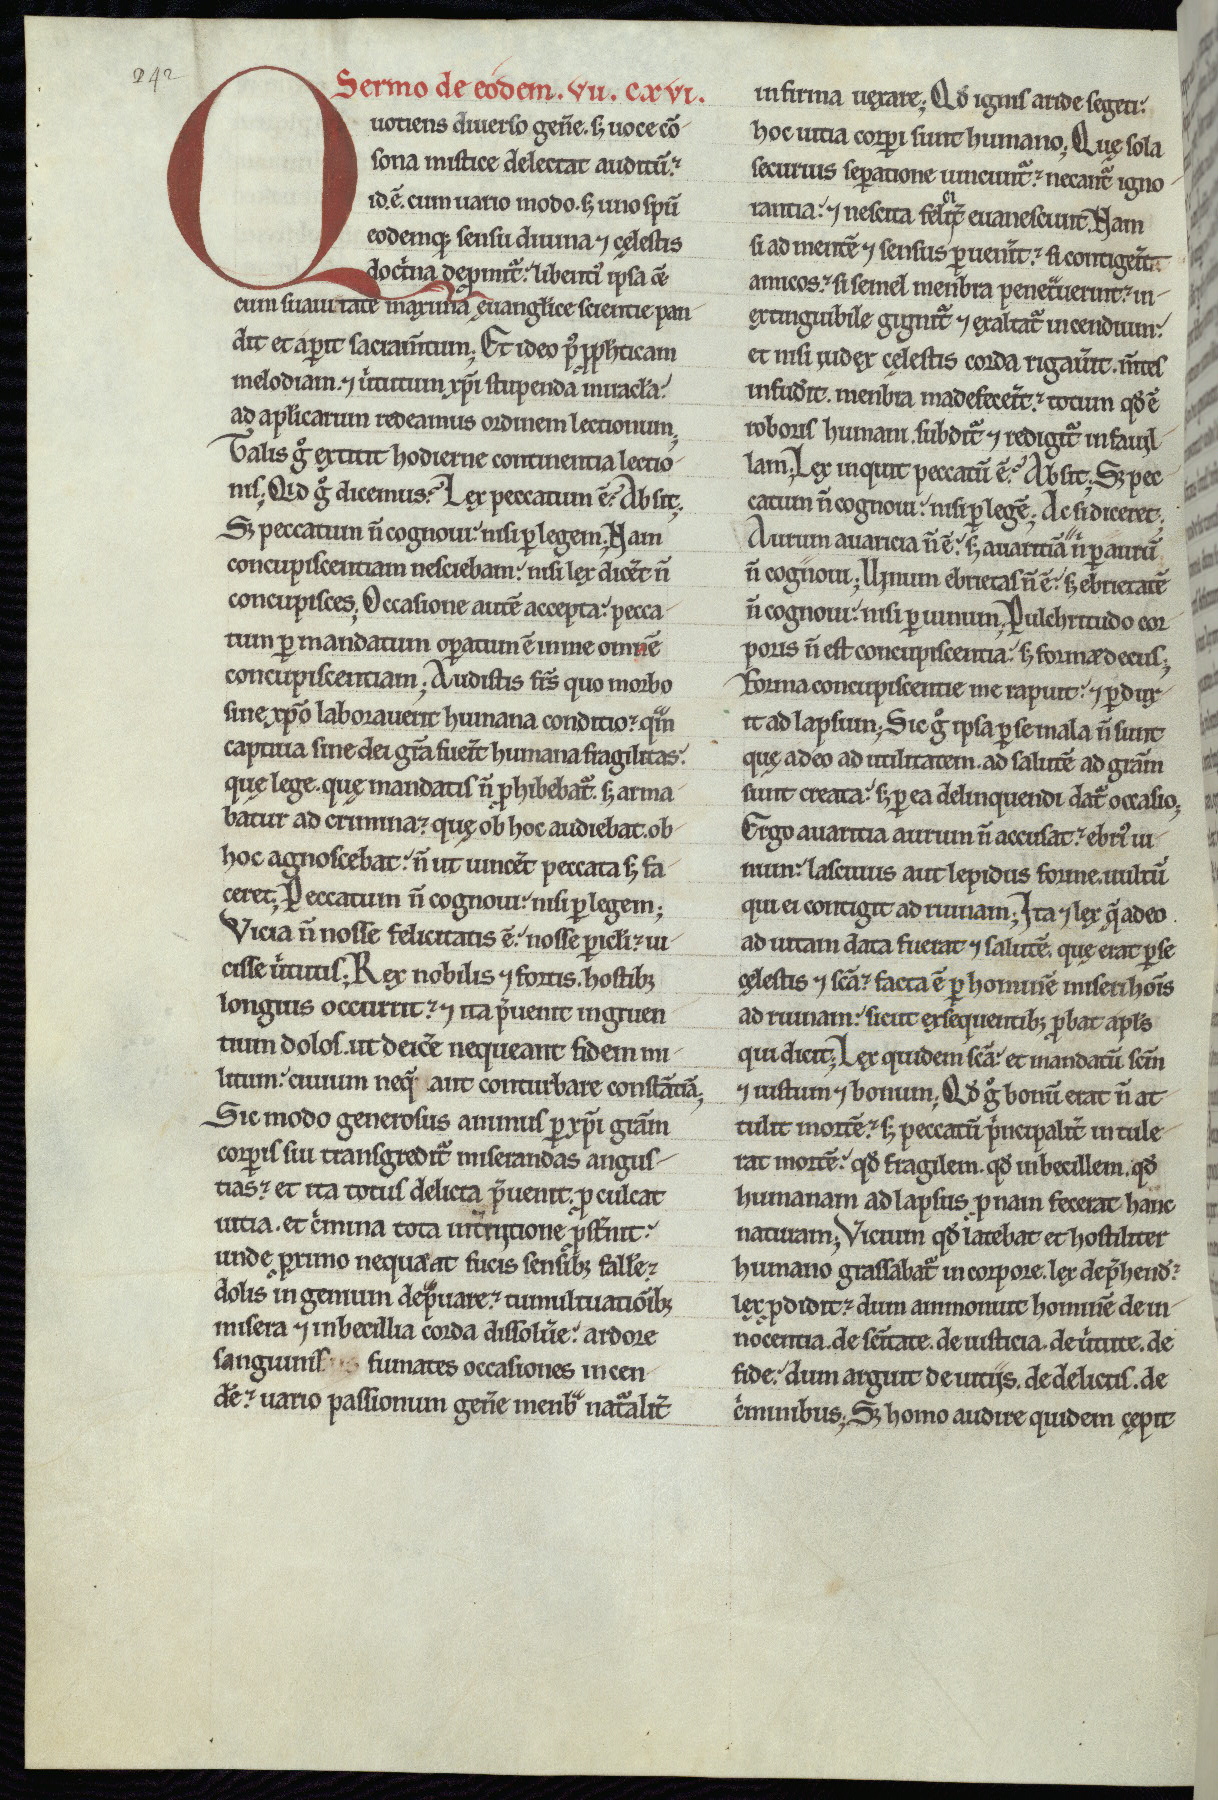 242
Sermo de eodem. vii. cxvi.
Quotiens diuerso gen̄e. ꝫ uoce cō
sona mistice delectat auditū:
id.ē. cum uario modo. ꝫ uno sp̄u
eodemq; sensu diuina ⁊ cęlestis
doct̓na depmit᷑: libent᷑ ipsa cē
cum suauitate maxima euanglice scientie pan
dit et aꝑit sacram̄tum; Et ideo p᷒ ꝓph̄ticam
melodiam. ⁊ u̓tutum xp̄i stupenda miracl̄a:
ad aplicarum redeamus ordinem lectionum;
Talis g̊ extitit hodierne continentia lectio
nis; Qid g̊ dicemus? Lex peccatum ē? Absit;
Sꝫ peccatum n̄ cognoui: nisi ꝑ legem; Nam
concupiscentiam nesciebam: nisi lex dicēt n̄
concupisces; Occasione autē accepta: pecca
tum ꝑ mandatum oꝑatum ē in me omnē
concupiscentiam; Audistis fr̄s quo morbo
sine xp̄o laborauerit humana conditio? qm̄
captiua sine dei gr̄a fuer̄it humana fragilitas:
quę lege. quę mandatis n̄ ꝓhibebat᷑. ꝫ arma
batur ad crimina? quę ob hoc audiebat. ob
hoc agnoscebat: n̄ ut uincēt peccata ꝫ fa
ceret; Peccatum n̄ cognoui: nisi ꝑ legem;
Vicia n̄ nosse felicitatis ē: nosse ꝑicl̄i? ui
cisse u̓tutis; Rex nobilis ⁊ fortis. hostibꝫ
longius occurrit? ⁊ ita p̄uenit ingruen
tium dolos. ut deicēre nequeant fidem mi
litum: ciuium neq; aut conturbare constātiā;
Sic modo generosus animus ꝑ xp̄i gr̄am
corꝑis sui transgredit᷑ miserandas angus
tias? et ita totus delicta p̄uenit. ꝓculcat
uitia. et c̓mina tota int̄ntione ꝓst̄nit:
unde ꝓximo nequeat fucis sensibꝫ fallere?
dolis ingenium dep̄uare? tumultuatiōibꝫ
misera ⁊ inbecillia corda dissoluēre: ardore
sanguinis fumātes occasiones incen
dēre? uario passionum gen̄e menbra nat᷑alit̄
infirma uexare; Qd̄ ignis aride segeti:
hoc uitia corꝑi sunt humano; Quę sola
securius seꝑatione uincunt᷑? necant᷑ igno
rantia: ⁊ nescita felicit̄ euanescunt. Nam
si ad mentē ⁊ sensus ꝑuener̄int? si contiger̄int
amicos? si semel menbra penet᷑uerint? in
extinguibile gignit᷑ ⁊ exaltat᷑ incendium:
et nisi iudex cęlestis corda rigauer̄it. m̄tes
infuder̄it. menbra madefecer̄it? totum qd̄ ē
roboris humani. subdit᷑ ⁊ redigit᷑ in fauil
lam; Lex inquit peccatū ē? Absit; Sꝫ pec
catum n̄ cognoui: nisi ꝑ legē; Ac si diceret;
Aurum auaricia n̄ ē: ꝫ auaritiā n̄ ꝑ aurū
n̄ cognoui; Uinum ebrietas n̄ ē: ꝫ ebrietatē
n̄ cognoui: nisi ꝑ uinum; Pulchritudo cor
poris n̄ est concupiscentia: ꝫ formæ decus;
Forma concupiscentie me rapuit: ⁊ ꝑdux
it ad lapsum; Sic g̊ ipsa ꝑ se mala n̄ sunt
quę a deo ad utilitatem. ad salutē ad gr̄am
sunt creata: ꝫ ꝑ ea delinquendi dat᷑ occasio;
Ergo auaritia aurum n̄ accusat? ebri᷒ ui
num: lasciuus aut lepidus forme. uultū
qui ei contigit ad ruinam; Ita ⁊ lex q̄ a deo
ad uitam data fuerat ⁊ salutē. quę erat ꝑ se
cęlestis ⁊ sc̄a? facta ē ꝑ hominē miseri hōis
ad ruinam: sicut exsequentibꝫ ꝓbat apl̄s
qui dicit; Lex quidem sc̄a: et mandatū sc̄m
⁊ iustum ⁊ bonum; Qd̄ g̊ bonū erat n̄ at
tulit mortē? ꝫ peccatū p̓ncipalit̄ intule
rat mortē: qd̄ fragilem. qd̄ inbecillem. qd̄
humanam ad lapsus ꝓnam fecerat hanc
naturam; Vicium qd̄ latebat et hostiliter
humano grassabat᷑ in corpore. lex dep̄hend̄?
lex ꝓdidit? dum ammonuit hominē de in
nocentia. de sc̄itate. de iusticia. de u̓tute. de
fide: dum arguit de uitijs. de delictis. de
c̓minibus; Sꝫ homo audire quidem cępit